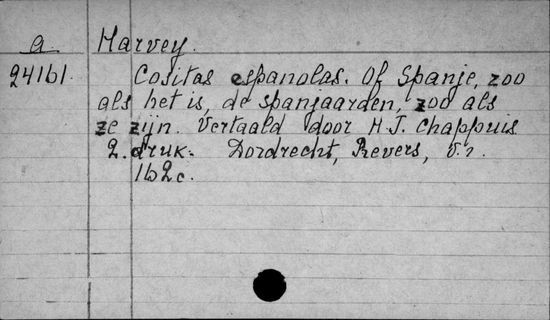 a. Harvey.
24161. Cositas espanolas. Of Spanje, zoo
als het is, de spanjaarden, zoo als
ze zijn. Vertaald door H.J. Chappuis
2. druk. Dordrecht, Revers,
162c.